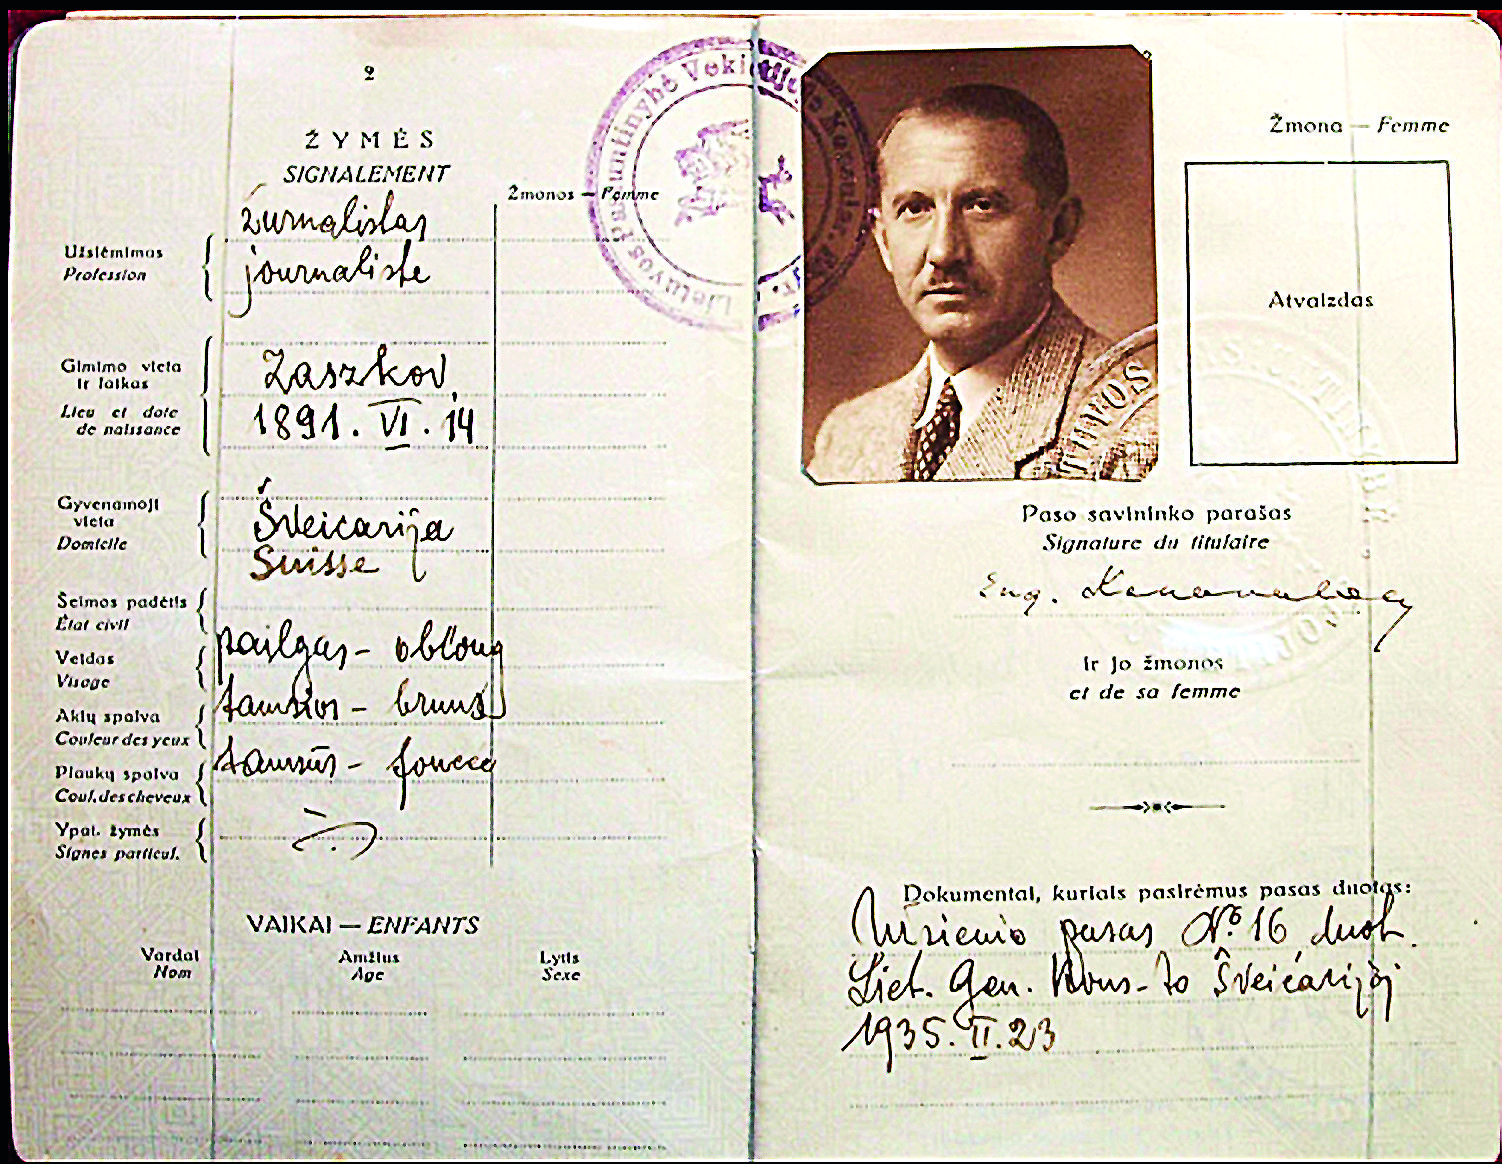 2
ŽYMĖS
SIGNALEMENT
Žmonos — Femme
Užsiėmimas
Profession
žurnalistas
journaliste
Gimimo vieta
ir laikas
Lieu et date
de naissance
Zaszkov,
1891. VI. 14
Gyvenamoji
vieta
Domicile
Šveicarija
Suisse
Šeimos padėtis
État civil
Veidas
Visage
pailgas - oblong
Akių spalva
Couleur des yeux
tamsios - bruns
Plaukų spalva
Coul. des cheveux
tamsūs - foncé
Ypat. žymės
Signes particul.
VAIKAI — ENFANTS
Vardai
Nom
Amžius
Age
Lytis
Sexe
Lietuvos Pasiuntinybė Vokietijoje
Žmona — Femme
Atvaizdas
TUVOS
Paso savininko parašas
Signature du titulaire
Eug. Konovalec
ir jo žmonos
et de sa femme
Dokumentai, kuriais pasirėmus pasas duotas:
Užsienio pasas No 16 duot.
Liet. Gen. Kons-to Šveicarijoj
1935. II. 23